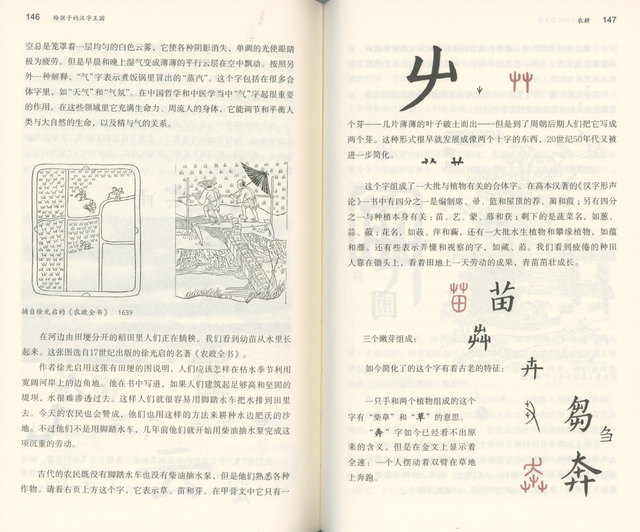 146 给孩子的汉字王国
空总是笼罩着一层均匀的白色云雾，它使各种阴影消失，单调的光使眼睛
极为疲劳。但是早晨和晚上湿气变成薄薄的平行云层在空中飘动。按照另
外一种解释，“气”字表示煮饭锅里冒出的“蒸汽”。这个字包括在很多合
体字里，如“天气”和“气氛”。在中国哲学和中医学当中“气”字起很重要
的作用。在这些领域里它充满生命力、周流人的身体，它能调节和平衡人
类与大自然的生命，以及精与气的关系。
摘自徐光启的《农政全书》 1639
在河边由田埂分开的稻田里人们正在插秧。我们看到幼苗从水里长
起来。这张图选自17世纪出版的徐光启的名著《农政全书》。
作者徐光启用这张有田埂的图说明，人们应该怎样在枯水季节利用
宽阔河岸上的边角地。他在书中写道，如果人们建筑起足够高和坚固的
堤坝，水很难渗透过去。这样人们就很容易用脚踏水车把水排到田埂里
去。今天的农民也会赞成，他们也用这样的方法来耕种水边肥沃的沙
地。不过他们不是用脚踏水车，几年前他们就开始用柴油抽水泵完成这
项沉重的劳动。
古代的农民既没有脚踏水车也没有柴油抽水泵，但是他们熟悉各种
作物。请看右页上方这个字，它表示草，苗和芽，在甲骨文中它只有一
农耕 147
个芽——几片薄薄的叶子破土而出——但是到了周朝后期人们把它写成
两个芽。这种形式很早就发展成像两个十字的东西，20世纪50年代又被
进一步简化。
这个字组成了一大批与植物有关的合体字。在高本汉著的《汉字形声
论》一书中有四分之一是编制席、
篮和屋顶的荐、蔺和葭；另有四分
之一与种植本身有关：苗、艺、蒙、蓐和获；剩下的是蔬菜名，如葱、
蒜、
花名，如
萍和
还有一大批水生植物和攀缘植物，如蕴
和
还有些表示弄懂和视察的字，如
我们看到疲倦的种田
人靠在锄头上，看着田地上一天劳动的成果，青苗茁壮成长。
苗
三个嫩芽组成：
芔
如今简化了的这个字有着古老的特征：
卉
一只手和两个植物组成的这个
字有“柴草”和“草”的意思。
芻 刍
“奔”字如今已经看不出原
来的含义，但是在金文上显示着
全速；一个人摆动着双臂在草地
上奔跑。
奔